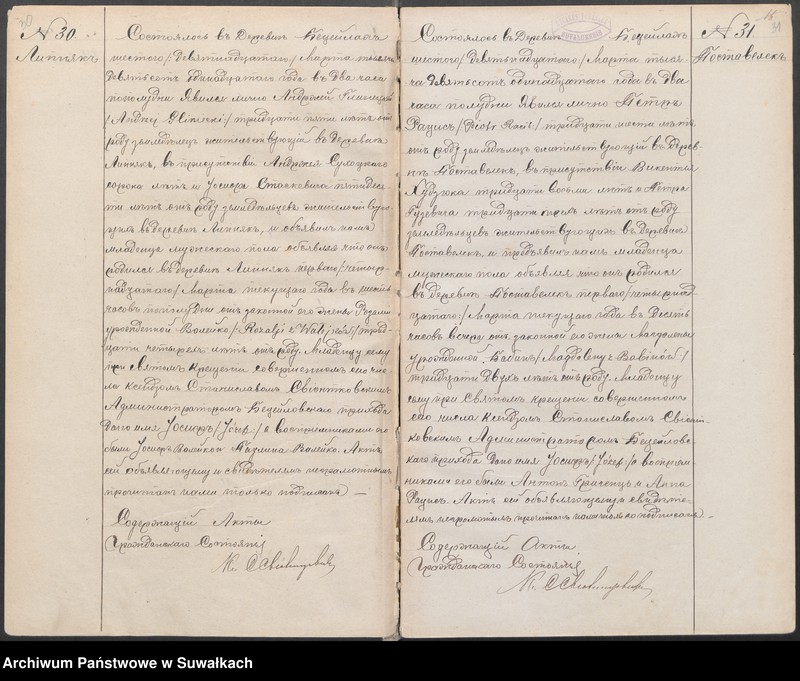 № 30
Липнякъ
Состоялось въ Деревнѣ Бецейлахъ
шестого /: Девятнадцатого:/ Марта тысяча
Девятьсотъ Одинадцатаго года въ Два часа
пополудни Явился лично Андржей
/: Andrzej :/ тридцати пяти лѣтъ отъ
роду земледѣлецъ жительствующій въ Деревнѣ
Липнякъ, въ присутствіи Андржея
сорока лѣтъ и Іосифа Сташкевича пятидеся-
ти лѣтъ отъ роду земледѣльцевъ жительствую-
щихъ въ деревнѣ Липнякъ, и объявилъ намъ
младенца мужескаго пола объявляя что онъ
родился въ деревнѣ Липнякъ перваго /: четыр-
надцатаго:/ Марта текущаго года въ шесть
часовъ пополудни отъ законной его жены Розаліи
урожденной Валейко /: Rozalji z :/ трид-
цати четырехъ лѣтъ отъ роду. Младенцу сему
при святомъ крещеніи совершенномъ его чис-
ла ксендзомъ Станиславомъ
Администраторомъ Бецейловскаго прихода
Дано имя Іосифъ /: Józef :/ а воспріемниками его
были Іосифъ Валейко и Валейко. Актъ
сей объявляющему и свидѣтелямъ неграмотнымъ
прочитанъ нами только подписанъ —
Содержащій Акты
Гражданскаго Состоянія
Кс. С.
№ 31
Поставелекъ
Состоялось въ Деревнѣ Бецейлахъ
шестого /: Девятнадцатаго:/ Марта тыся-
ча Девятьсотъ одинадцатаго года въ Два
часа полудни явился лично Петръ
Рацисъ /: Piotr Racis :/ тридцати шести лѣтъ
отъ роду земледѣлецъ жительствующій въ Дерев-
нѣ Поставелекъ, въ присутствіи Викентія
тридцати восьми лѣтъ и Петра
тридцати лѣтъ отъ роду
земледѣльцевъ жительствующихъ въ Деревнѣ
Поставелекъ, и предъявилъ намъ младенца
мужескаго пола объявляя что онъ родился
въ деревнѣ Поставелекъ перваго /: четырнад-
цатаго:/ Марта текущаго года въ Десять
часовъ вечера отъ законной его жены Магдалены
урожденной Бабинъ /: Magdaleny z Babinów :/
тридцати Двухъ лѣтъ отъ роду. Младенцу
сему при Святомъ крещеніи совершенномъ
его числа Ксендзомъ Станиславомъ
Администраторомъ Бецейловс-
каго прихода Дано имя Іосифъ /: Józef :/ а воспріем-
никами его были Антонъ и Анна
Рацисъ. Актъ сей объявляющему и свидѣте-
лямъ неграмотнымъ прочитанъ нами только подписанъ —
Содержащій Акты
Гражданскаго Состоянія
Кс. С.
Archiwum Państwowe w Suwałkach